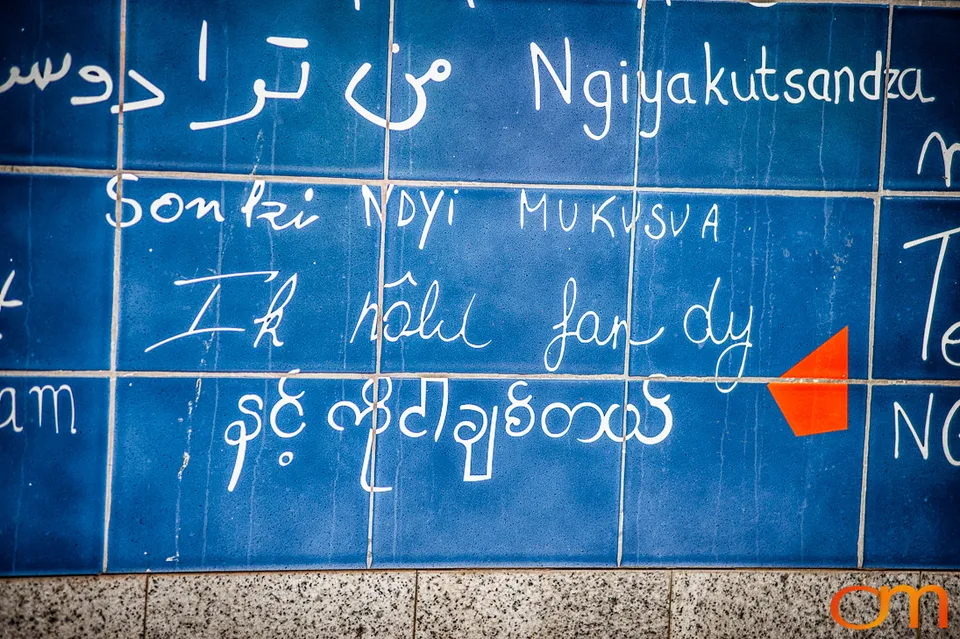 من ترا دوس
Ngiyakutsandza
Son kzi NDYI MUKUSVA
Ik hâld fan dy
နင့်ကိုငါချစ်တယ်
am
om